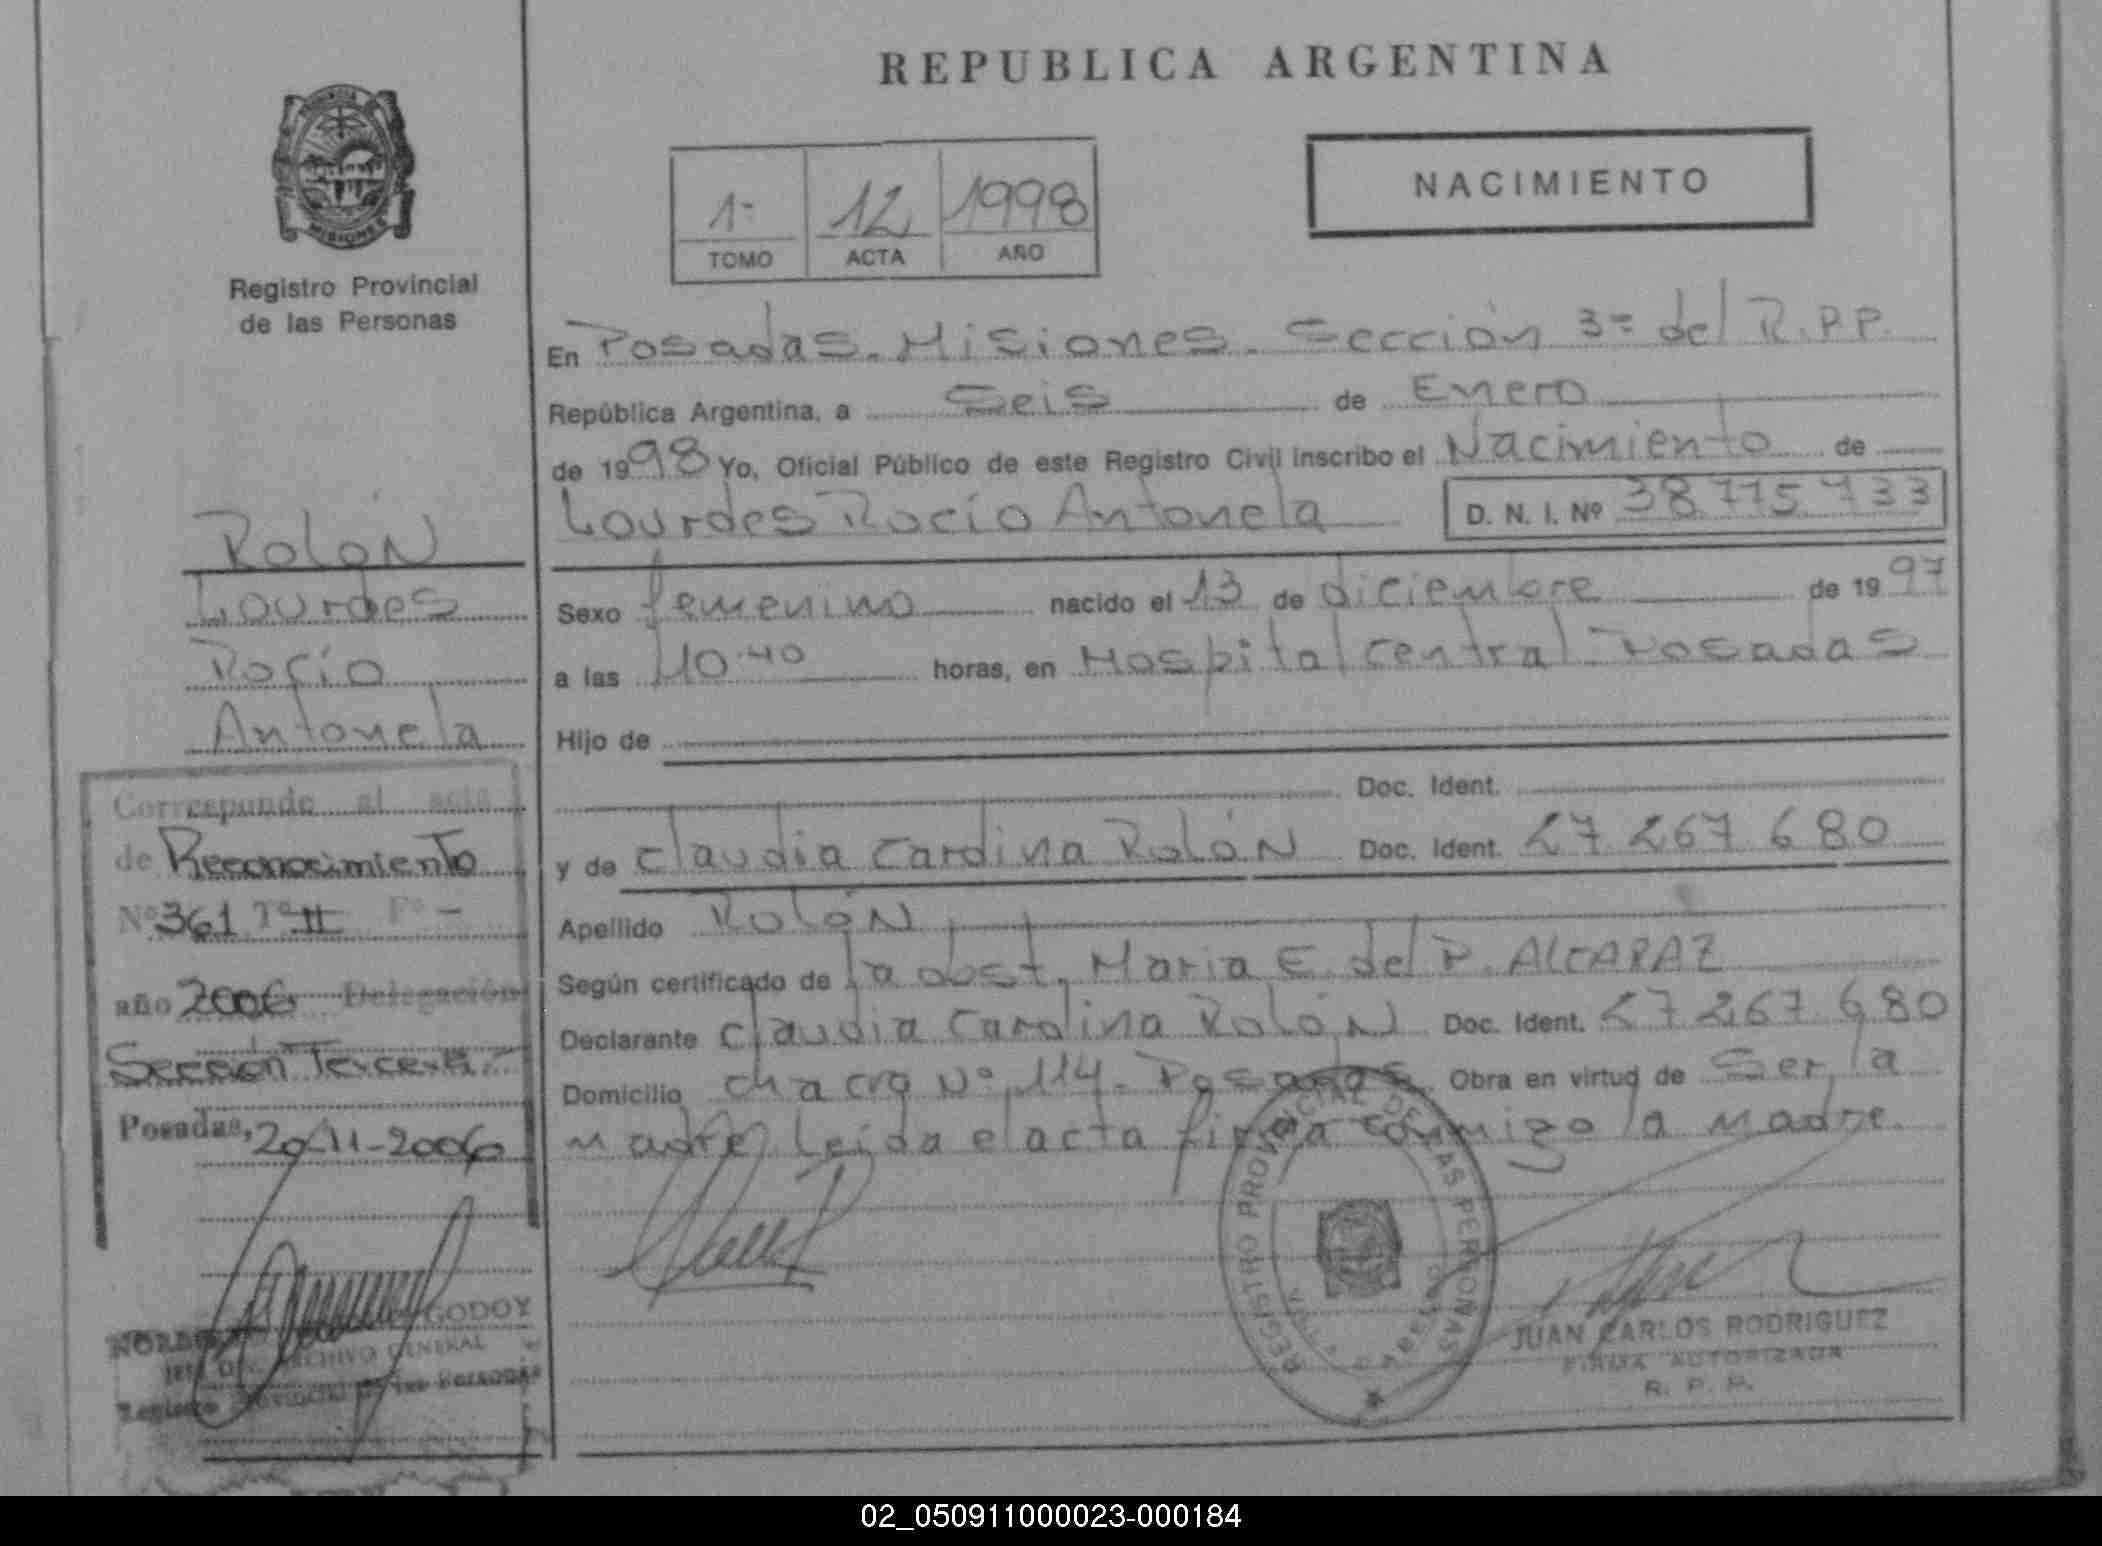 REPUBLICA ARGENTINA
NACIMIENTO
1º 12 1998
TOMO ACTA AÑO
MISIONES
Registro Provincial
de las Personas
En Posadas. Misiones. Sección 3º del R.P.P.
República Argentina, a Seis de Enero
de 1998 Yo, Oficial Público de este Registro Civil inscribo el Nacimiento de
Lourdes Rocío Antonela D. N. I. Nº 38 775 733
Sexo femenino nacido el 13 de diciembre de 1997
a las 10.40 horas, en Hospital Central Posadas
Hijo de
Doc. Ident.
y de Claudia Carolina Rolón Doc. Ident. 27 267 680
Apellido Rolón
Según certificado de la obst. Maria E. del P. ALCARAZ
Declarante Claudia Carolina Rolón Doc. Ident. 27 267 680
Domicilio chacra Nº 114. Posadas Obra en virtud de Ser la
madre leida el acta firma conmigo la madre.
Rolón
Lourdes
Rocío
Antonela
Corresponde al acta
de Reconocimiento
Nº 361 Tº II Fº -
año 2006 Delegación
Sección Tercera
Posadas, 20-11-2006
GODOY
ARCHIVO GENERAL
Registro Provincial de las Personas
REGISTRO PROVINCIAL DE LAS PERSONAS
JUAN CARLOS RODRIGUEZ
FIRMA AUTORIZADA
R. P. P.
02_050911000023-000184